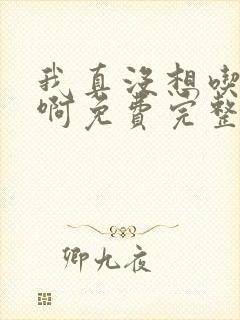 我真没想喫
啊免费完整
卿九夜